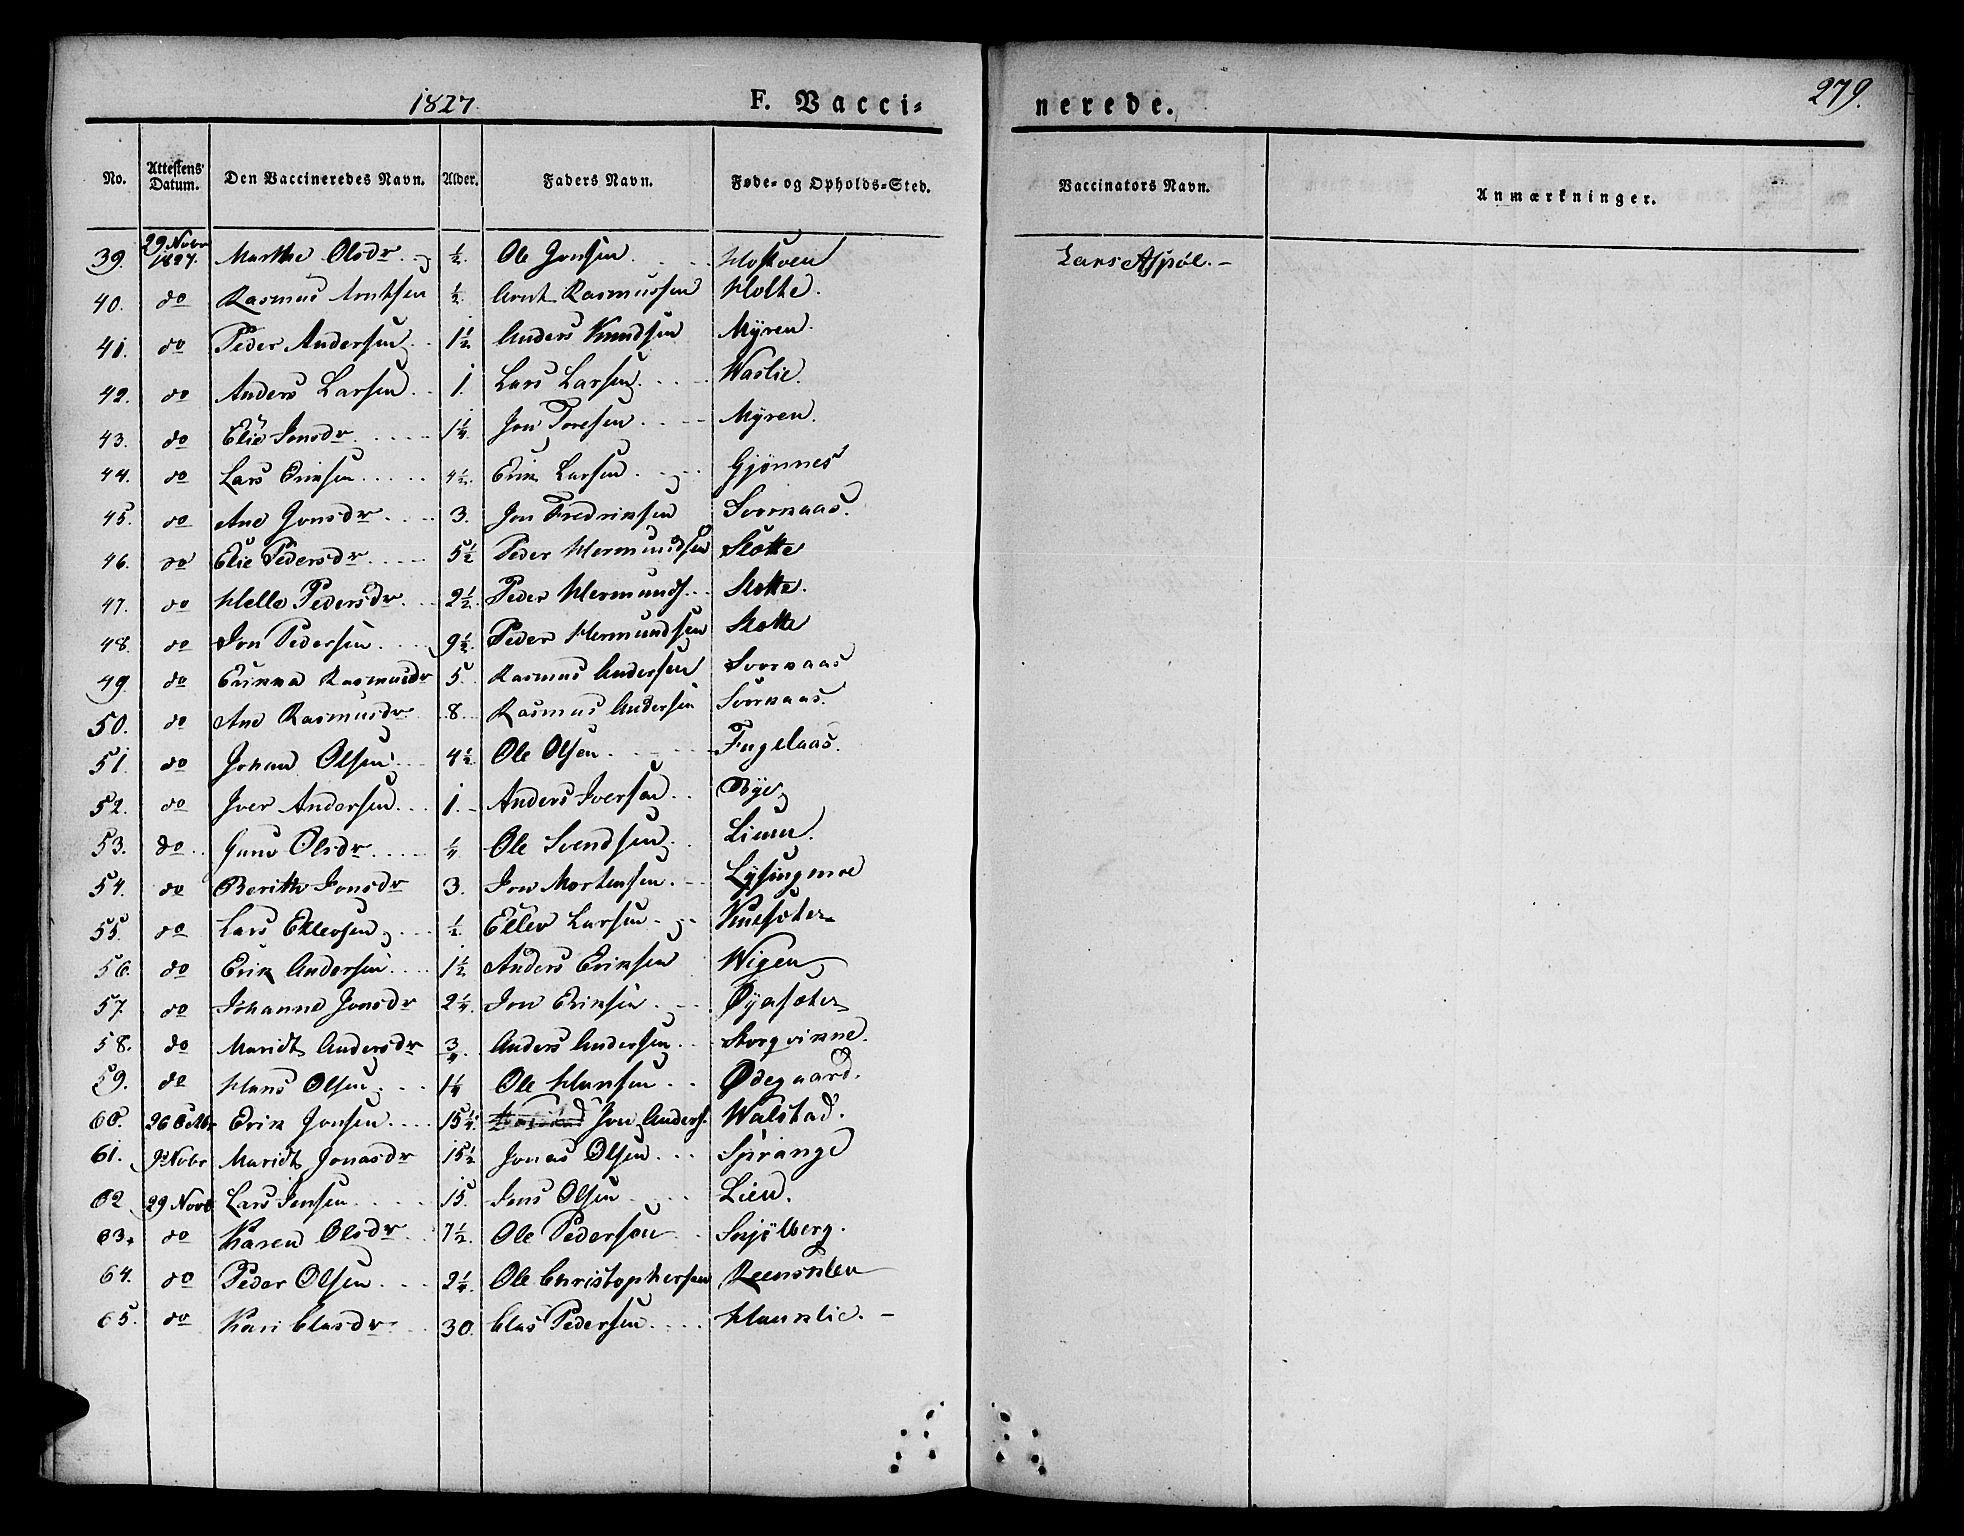 1827. F. Vacci=
nerede. 279.
No. Attestens Datum. Den Vaccineredes Navn. Alder. Faders Navn. Føde- og Opholds-Sted. Vaccinators Navn. Anmærkninger.
39. 29 Novbr 1827. Marthe Olsdr. ½ Ole Jonsen. Hoskoen Lars Aspöe.
40. do Rasmus Arntsen ½ Arnt Rasmussen Holte.
41. do Peder Andersen 1½ Anders Knudsen Mÿren.
42. do Anders Larsen 1. Lars Larsen Waslie.
43. do Elie Jonsdr 1¼ Jon Toresen Mÿren.
44. do Lars Eriksen 4½. Erik Larsen Gjønnes
45. do Ane Jonsdr 3. Jon Fredriksen Svornaas.
46. do Elie Pedersdr 5½ Peder Hermundsen Slotte
47. do Helle Pedersdr. 2½. Peder Hermunds. Slotte.
48. do Jon Pedersen 9½. Peder Hermundsen Slotte
49. do Erikka Rasmusdr 5. Rasmus Andersen Svornaas
50. do Ane Rasmusdr 8. Rasmus Andersen Svornaas.
51. do Johan Olsen 4½. Ole Olsen. Fugelaas.
52. do Jver Andersen 1. Anders Iversen Bÿe
53. do Guno Olsdr ¼ Ole Svendsen Liunu.
54. do Berithe Jonsdr 3. Jon Mortensen. Lÿsingmoe
55. do Lars Ellevsen ½. Ellev Larsen Knesæter
56. do Erik Andersen 1½ Anders Eriksen Wigen
57. do Johanne Jonsdr 2¼. Jon Eriksen. Øÿesæter
58. do Maridt Andersdr ¾. Anders Andersen Storqvinne.
59. do Hans Olsen 1¼ Ole Hansen Ødegaard.
60. 26 Octbr Erik Jonsen 15¼. Jon Anders. Walstad.
61. 9 Novbr Maridt Jonasdr 15½ Jonas Olsen Spirange
62 29 Novb Lars Jensen 15. Jens Olsen Lien.
63. do Karen Olsdr 7½. Ole Pedersen Snjölberg.
64. do Peder Olsen 2¼. Ole Christophersen Reensklev
65. do Kari Clasdr 30. Clas Pedersen Hauklie.